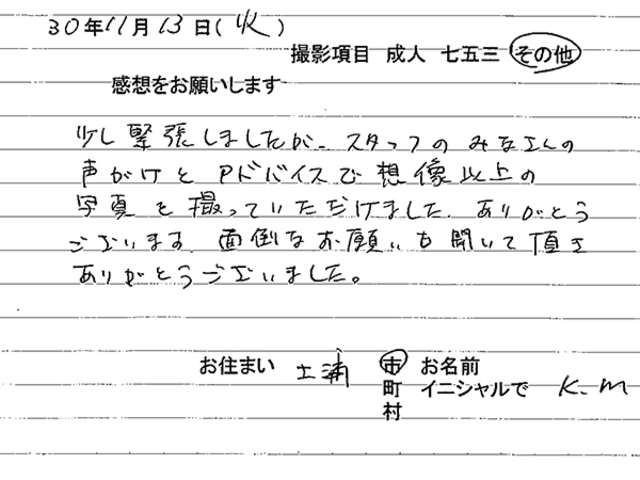 30年11月13日(火)
撮影項目 成人 七五三 その他
感想をお願いします
少し緊張しましたが、スタッフのみなさんの
声がけとアドバイスで想像以上の
写真を撮っていただけました。ありがとう
ございます。面倒なお願いも聞いて頂き
ありがとうございました。
お住まい 土浦 市 お名前
町 イニシャルで K.M
村